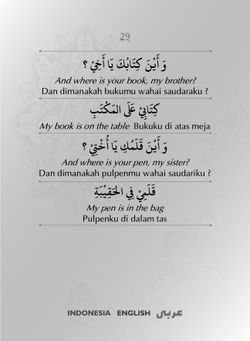 29
وَ أَيْنَ كِتَابُكَ يَا أَخِيْ ؟
And where is your book, my brother?
Dan dimanakah bukumu wahai saudaraku ?
كِتَابِيْ عَلَى المَكْتَبِ
My book is on the table Bukuku di atas meja
وَ أَيْنَ قَلَمُكِ يَا أُخْتِيْ ؟
And where is your pen, my sister?
Dan dimanakah pulpenmu wahai saudariku ?
قَلَمِيْ فِي الحَقِيْبَةِ
My pen is in the bag
Pulpenku di dalam tas
INDONESIA ENGLISH عربي